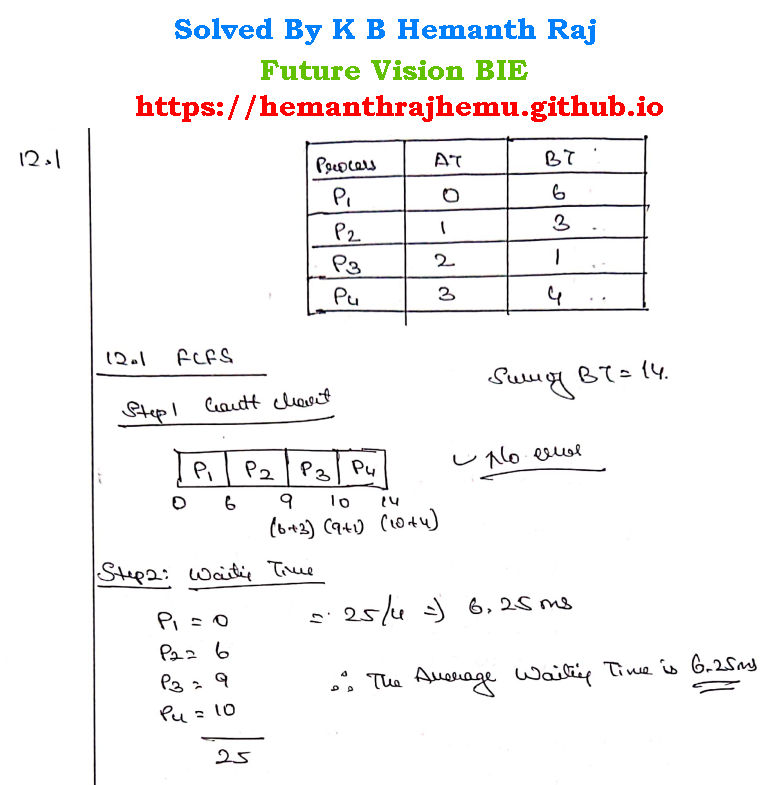 Solved By K B Hemanth Raj
Future Vision BIE
https://hemanthrajhemu.github.io
12.1
Process AT BT
P1 0 6
P2 1 3
P3 2 1
P4 3 4
12.1 FCFS
Sum of BT = 14.
Step1 Gantt Chart
P1 P2 P3 P4
No error
0 6 9 10 14
(6+3) (9+1) (10+4)
Step2: Waiting Time
P1 = 0 = 25/4 => 6.25 ms
P2 = 6
P3 = 9 ∴ The Average Waiting Time is 6.25ms
P4 = 10
25